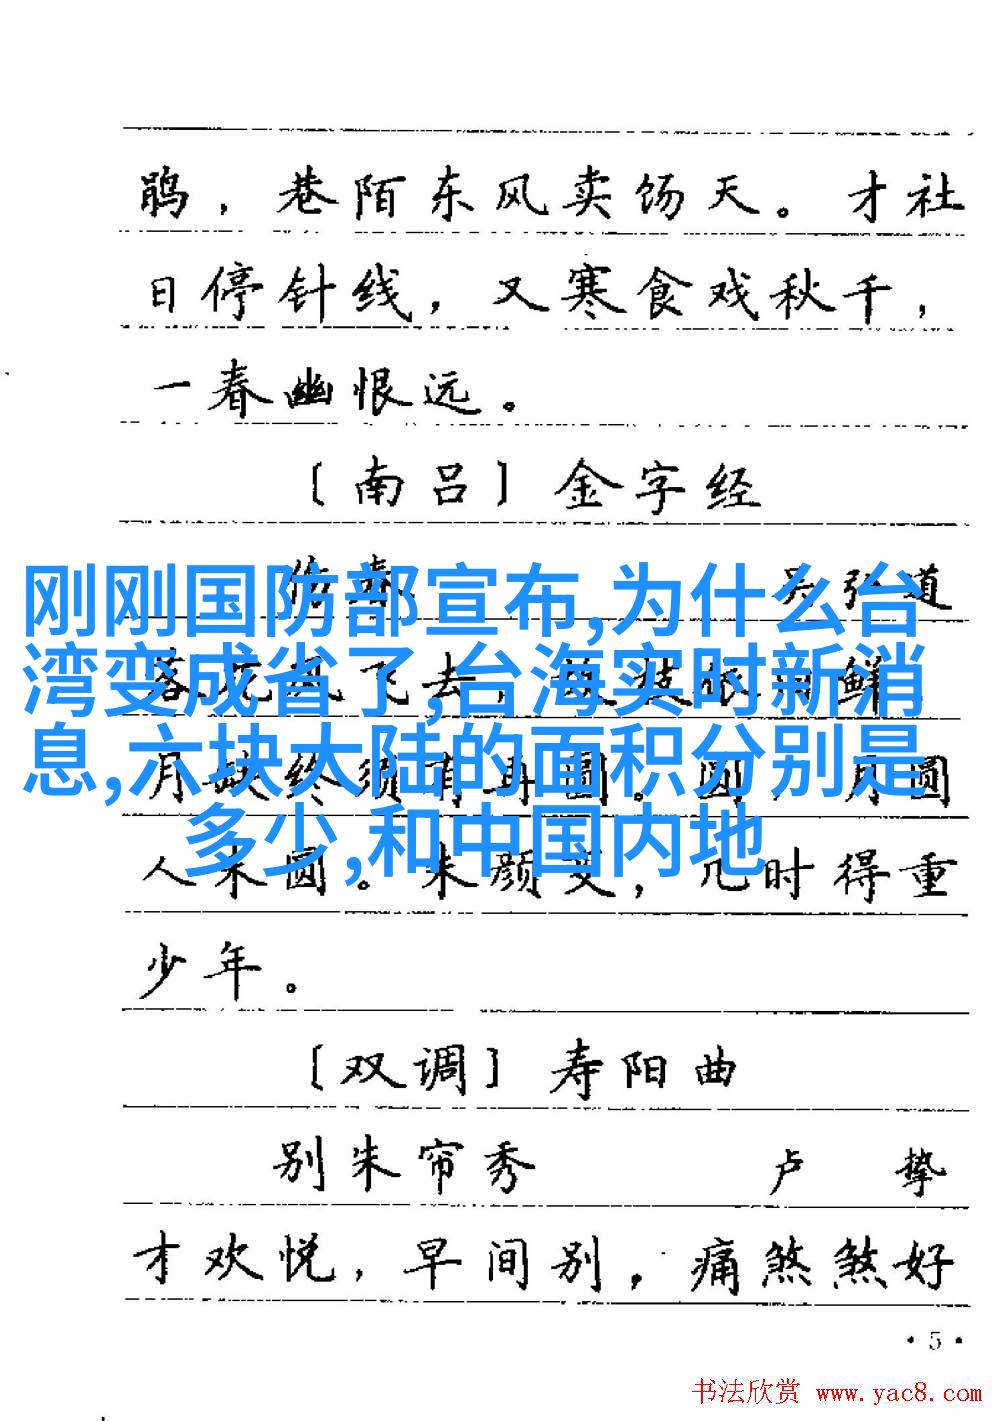 鹃，巷陌东风卖饧天。才社
日停针线，又寒食戏秋千，
一春幽恨远。
〔南吕〕金字经
伤春 吴弘道
刚刚国防部宣布,为什么台
落花风飞去，
湾变成省了,台海实时新消
月缺终须有再圆。圆，月圆
息,六块大陆的面积分别是
多少,和中国内地
人未圆。朱颜变，几时得重
少年。
〔双调〕寿阳曲
别朱帘秀 卢挚
才欢悦，早间别，痛煞煞好
·5·
书法欣赏 www.yac8.com